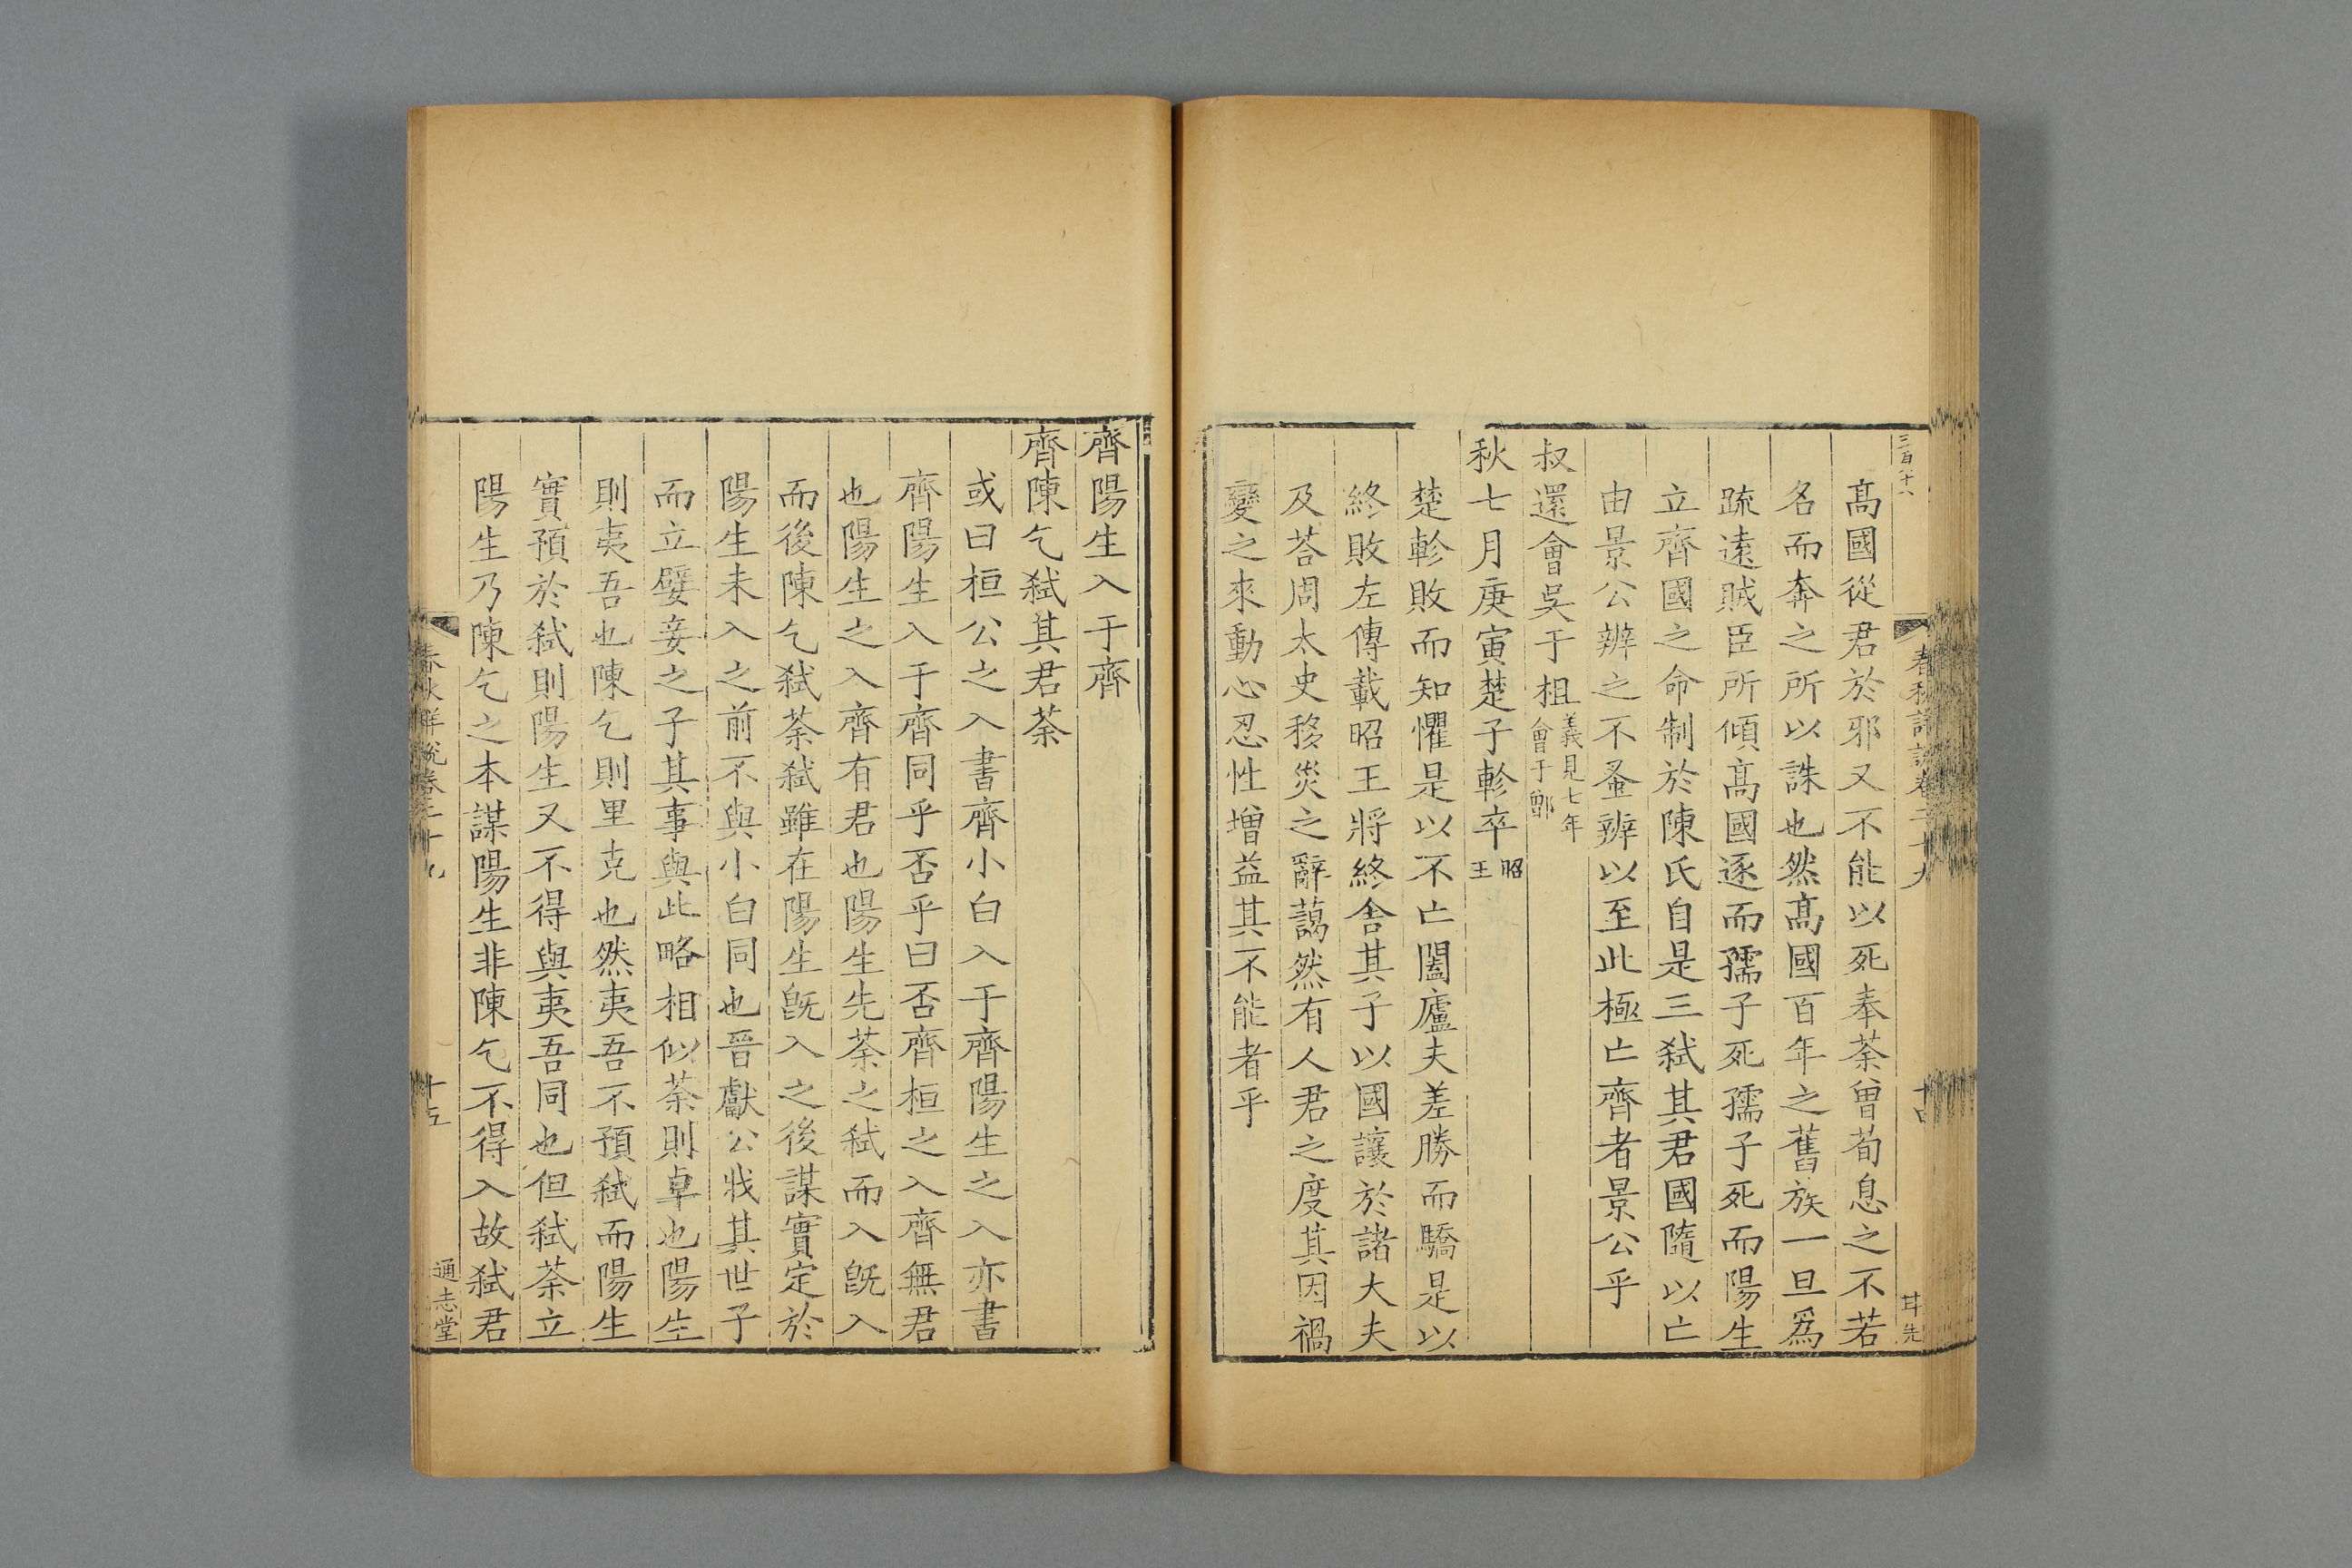 三百十八
春秋詳說卷二十九
十四
甘先
髙國從君於邪又不能以死奉荼曽荀息之不若
名而奔之所以誅也然髙國百年之舊族一旦爲
疏逺賊臣所傾髙國逐而孺子死孺子死而陽生
立齊國之命制於陳氏自是三弑其君國隨以亡
由景公辨之不蚤辨以至此極亡齊者景公乎
叔還會吳于柤義見七年會于鄫
秋七月庚寅楚子軫卒昭王
楚軫敗而知懼是以不亡闔廬夫差勝而驕是以
終敗左傳載昭王將終舍其子以國讓於諸大夫
及荅周太史移災之辭藹然有人君之度其因禍
變之來動心忍性増益其不能者乎
齊陽生入于齊
齊陳乞弑其君荼
或曰桓公之入書齊小白入于齊陽生之入亦書
齊陽生入于齊同乎否乎曰否齊桓之入齊無君
也陽生之入齊有君也陽生先荼之弑而入旣入
而後陳乞弑荼弑雖在陽生旣入之後謀實定於
陽生未入之前不與小白同也晉獻公戕其世子
而立嬖妾之子其事與此略相似荼則卓也陽生
則夷吾也陳乞則里克也然夷吾不預弑而陽生
實預於弑則陽生又不得與夷吾同也但弑荼立
陽生乃陳乞之本謀陽生非陳乞不得入故弑君
春秋詳說卷二十九
十五
通志堂